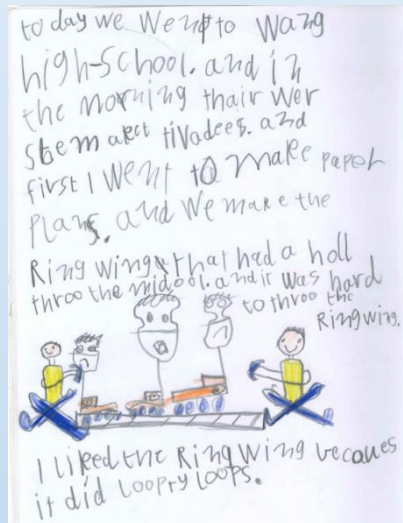 to day we Went to Wang
high-School. and in
the morning thair wer
Stem akct tivadees. and
first I went to make paper
Plans. and We make the
Ring wings that had a holl
throo the midool. and it was hard
to throo the
Ringwing.
I liked the Ring Wing becaues
it did Looply loops.